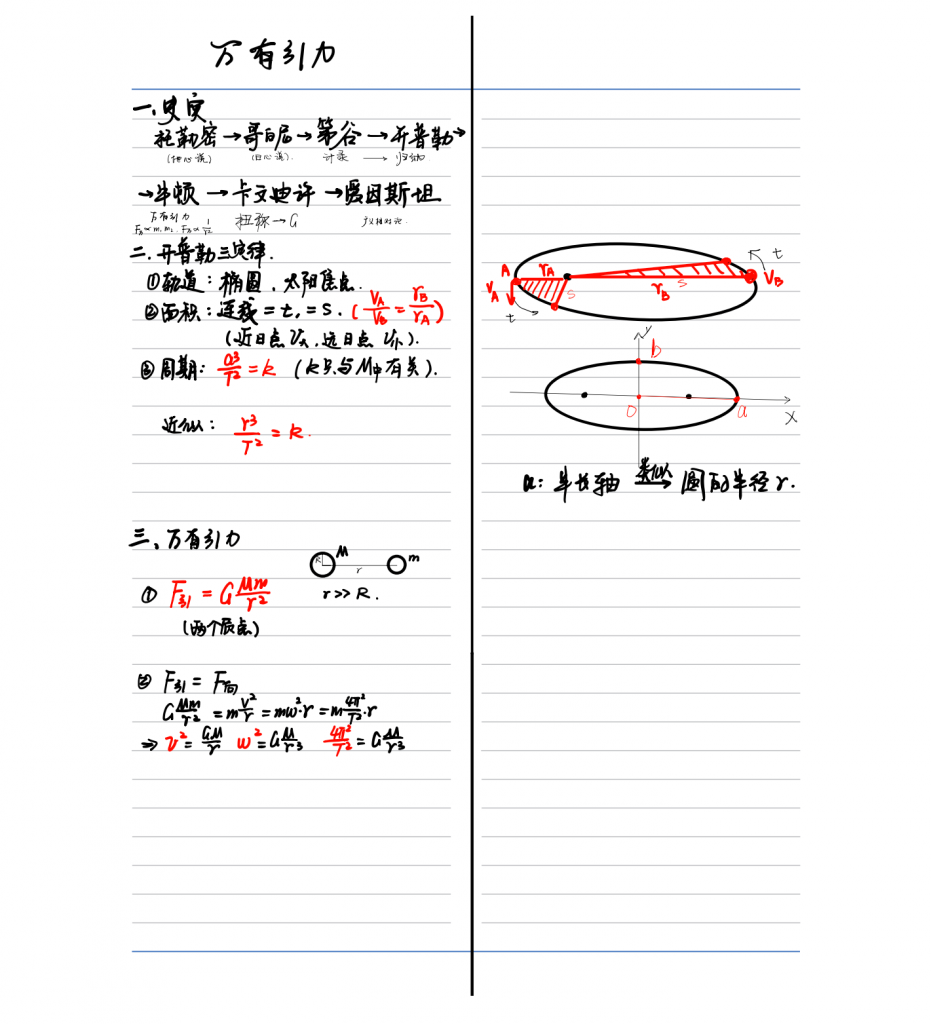 万有引力
一.史实
托勒密→哥白尼→第谷→开普勒→
(地心说) (日心说). 记录 → 归纳
→牛顿→卡文迪许→爱因斯坦
万有引力 扭称→G 广义相对论.
二.开普勒三定律.
①轨道：椭圆，太阳焦点.
②面积：连线=t,=S. (V_A/V_B=r_B/r_A)
(近日点V大,远日点V小).
③周期：a³/T²=k (k只与M中有关).
近似： r³/T²=k.
三、万有引力
R M r m
① F引=G Mm/r² r>>R.
(两个质点)
② F引=F向
G Mm/r²=m v²/r=mω²·r=m 4π²/T²·r
⇒ v²=GM/r ω²=G M/r³ 4π²/T²=G M/r³
A r_A t
V_A S r_B S V_B
t
y
b
O a
X
a：半长轴 类似→ 圆的半径r.